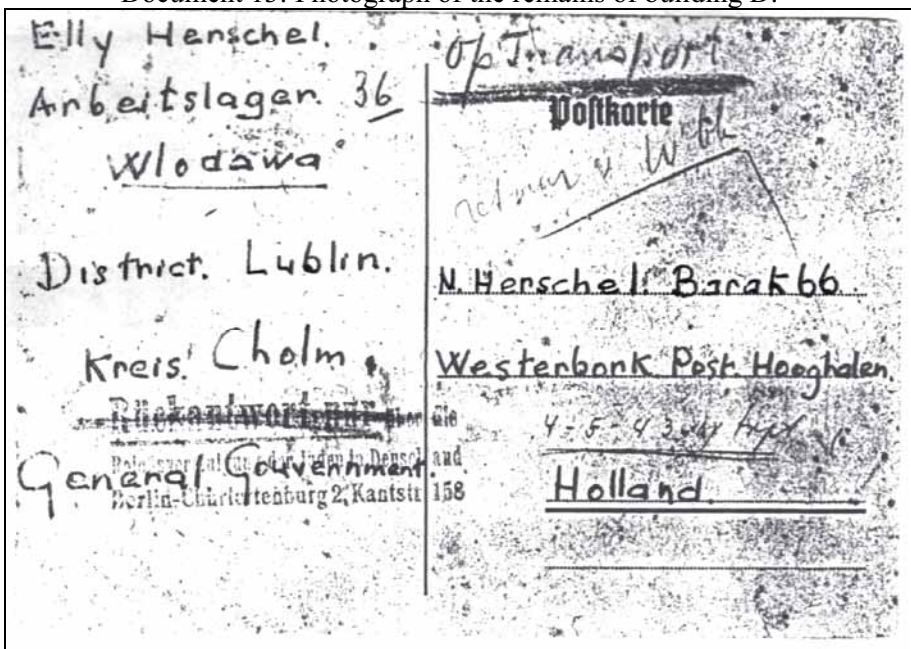 Document 15: Photograph of the remains of building D.
Elly Henschel.
Arbeitslager. 36
Wlodawa
District. Lublin.
Kreis. Cholm.
Rückantwort nur über die
Reichsvereinigung der Juden in Deutschland
General Gouvernment.
Berlin-Charlottenburg 2, Kantstr 158
Op Transport
Postkarte
retour
N. Henschel. Barak 66
Westerbork Post. Hooghalen.
4-5-43
Holland